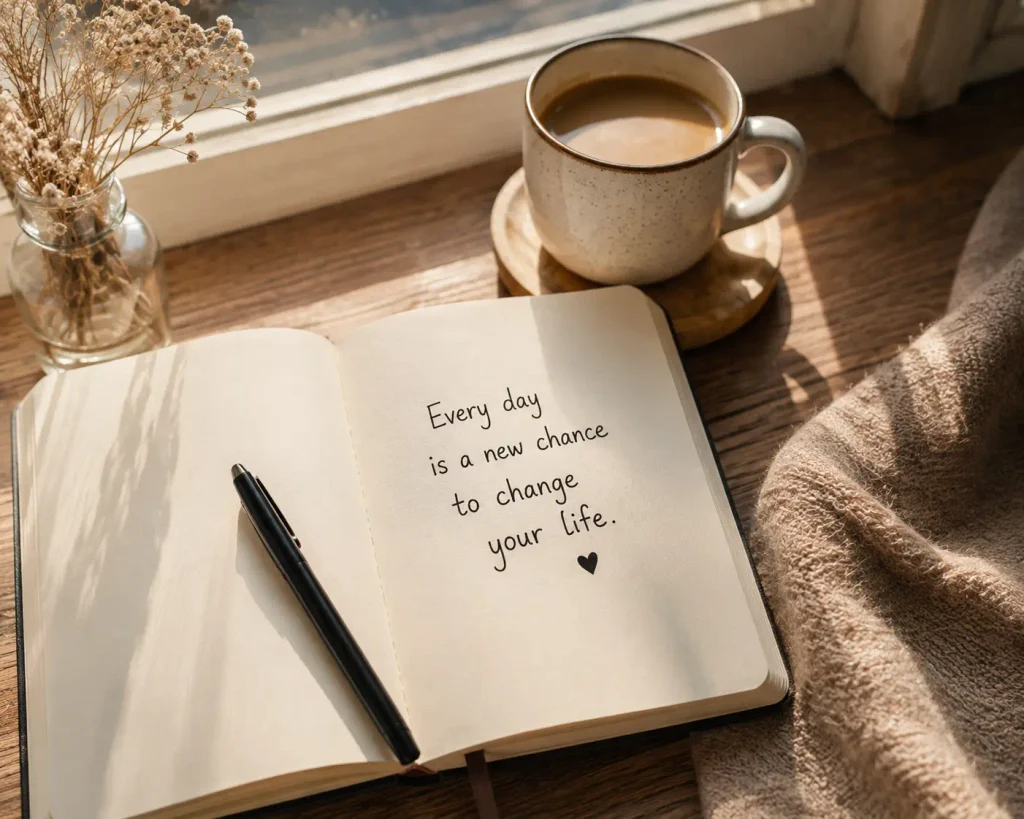 Every day
is a new chance
to change
your life.